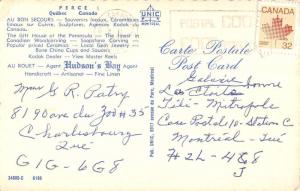 PERCE
Québec Canada
AU BON SECOURS - Souvenirs locaux, Céramiques
Emaux sur Cuivre, Sculptures, Agences Kodak du
Canada.
The Gift House of the Peninsula — The finest in
Canadian Woodcarving — Sapphire Carving —
Popular priced Ceramics — Local Gem Jewelry
Bone China Cups and Saucers
Kodak Dealer — View Master Reels
AU ROUET - Agent Hudson's Bay Agent
Handicraft — Artisanat — Fine Linen
UNIC
MONTREAL
POSTAL CODE
CANADA
32
Carte Postale
Post Card
Mrs G R. Patry
8190 ave du Zoo #33
Charlesbourg
Qué
G1G-6G8
Les
Télé-Métropole
Case Postale 10-Station C
Montréal - Qué
H2L-4G8
Pub. UNIC, Montréal
34080-C